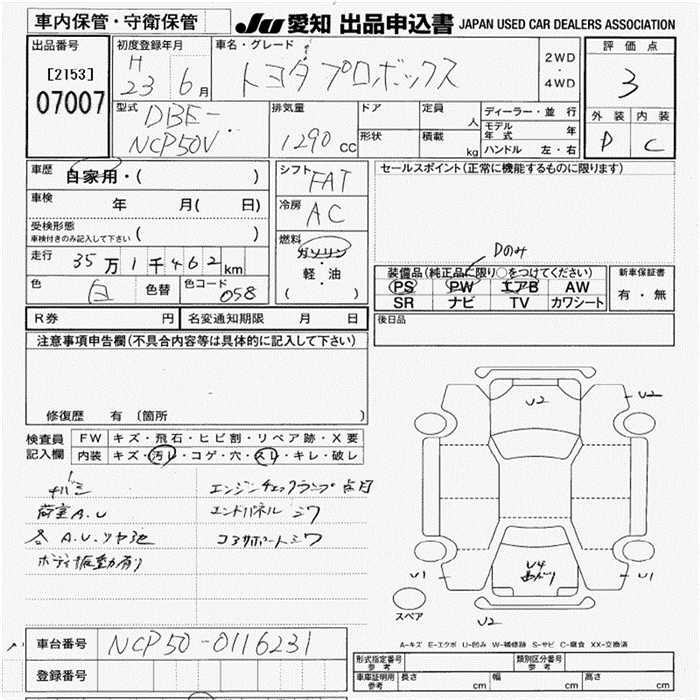 車内保管・守衛保管
JU 愛知 出品申込書 JAPAN USED CAR DEALERS ASSOCIATION
出品番号
[2153]
07007
初度登録年月
H
23 6月
車名・グレード
トヨタ プロボックス
2WD
・
4WD
評価点
3
外装 内装
D C
型式
DBE-
NCP50V
排気量
1290 cc
ドア
形状
定員 人
積載 kg
ディーラー・並行
モデル年式 年
ハンドル 左・右
車歴 自家用・( )
車検 年 月( 日)
受検形態
車検付きのみ記入して下さい ・( )
走行 35万1千462km
色 白 色替 色コード 058
シフト FAT
冷房 AC
燃料
ガソリン
軽・油
( )
セールスポイント(正常に機能するものに限ります)
Dのみ
装備品(純正品に限り○をつけてください)
PS PW エアB AW
SR ナビ TV カワシート
新車保証書
有・無
R券 円 名変通知期限 月 日
後日品
注意事項申告欄(不具合内容等は具体的に記入して下さい)
修復歴 有 〔箇所 〕
検査員
記入欄
FW キズ・飛石・ヒビ割・リペア跡・X要
内装 キズ・汚レ・コゲ・穴・スレ・キレ・破レ
エンジンチェックランプ点灯
荷室A.U エンドパネル シワ
各A.U.ツヤ〃 コアサポートシワ
ボディ振動有り
U2
U2
U1
U4
U1
U2
スペア
A-キズ E-エクボ U-凹み W-補修跡 S-サビ C-腐食 XX-交換済
車台番号 NCP50-0116231
登録番号
形式指定番号
参考
類別区分番号
参考
車庫証明用
参考
長さ cm 幅 cm 高さ cm